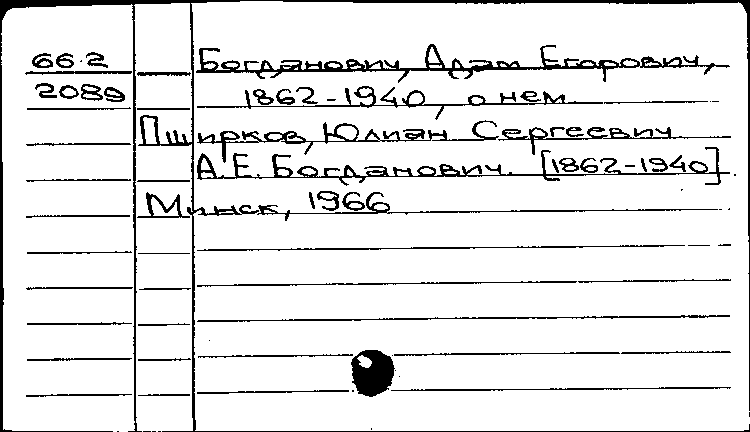 66.2 Богданович, Адам Егорович,
2089 1862-1940, о нем
Пширков, Юлиан Сергеевич
А.Е. Богданович. [1862-1940].
Минск, 1966